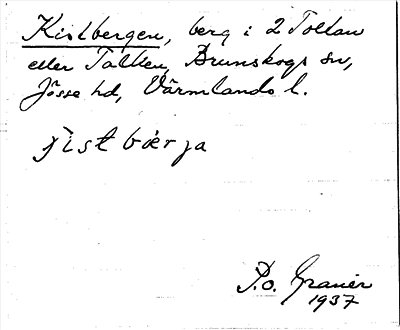 Kistbergen, berg i 2 Toltan
eller Talken, Brunskogs sn,
Jösse hd, Värmlands l.
ɟistbærja
P.o. Granér
1937